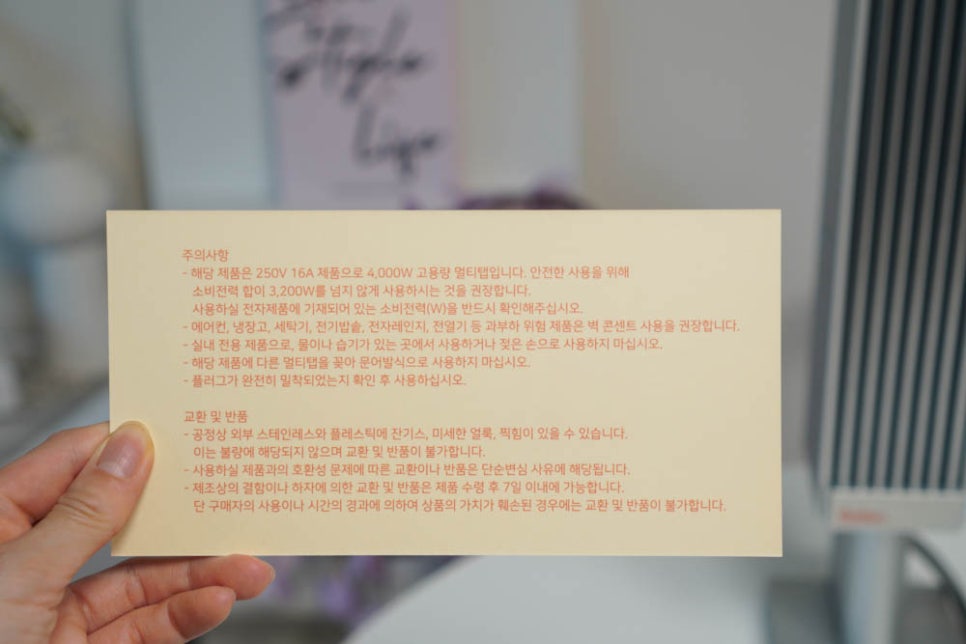 주의사항
- 해당 제품은 250V 16A 제품으로 4,000W 고용량 멀티탭입니다. 안전한 사용을 위해
소비전력 합이 3,200W를 넘지 않게 사용하시는 것을 권장합니다.
사용하실 전자제품에 기재되어 있는 소비전력(W)을 반드시 확인해주십시오.
- 에어컨, 냉장고, 세탁기, 전기밥솥, 전자레인지, 전열기 등 과부하 위험 제품은 벽 콘센트 사용을 권장합니다.
- 실내 전용 제품으로, 물이나 습기가 있는 곳에서 사용하거나 젖은 손으로 사용하지 마십시오.
- 해당 제품에 다른 멀티탭을 꽂아 문어발식으로 사용하지 마십시오.
- 플러그가 완전히 밀착되었는지 확인 후 사용하십시오.
교환 및 반품
- 공정상 외부 스테인레스와 플레스틱에 잔기스, 미세한 얼룩, 찍힘이 있을 수 있습니다.
이는 불량에 해당되지 않으며 교환 및 반품이 불가합니다.
- 사용하실 제품과의 호환성 문제에 따른 교환이나 반품은 단순변심 사유에 해당됩니다.
- 제조상의 결함이나 하자에 의한 교환 및 반품은 제품 수령 후 7일 이내에 가능합니다.
단 구매자의 사용이나 시간의 경과에 의하여 상품의 가치가 훼손된 경우에는 교환 및 반품이 불가합니다.